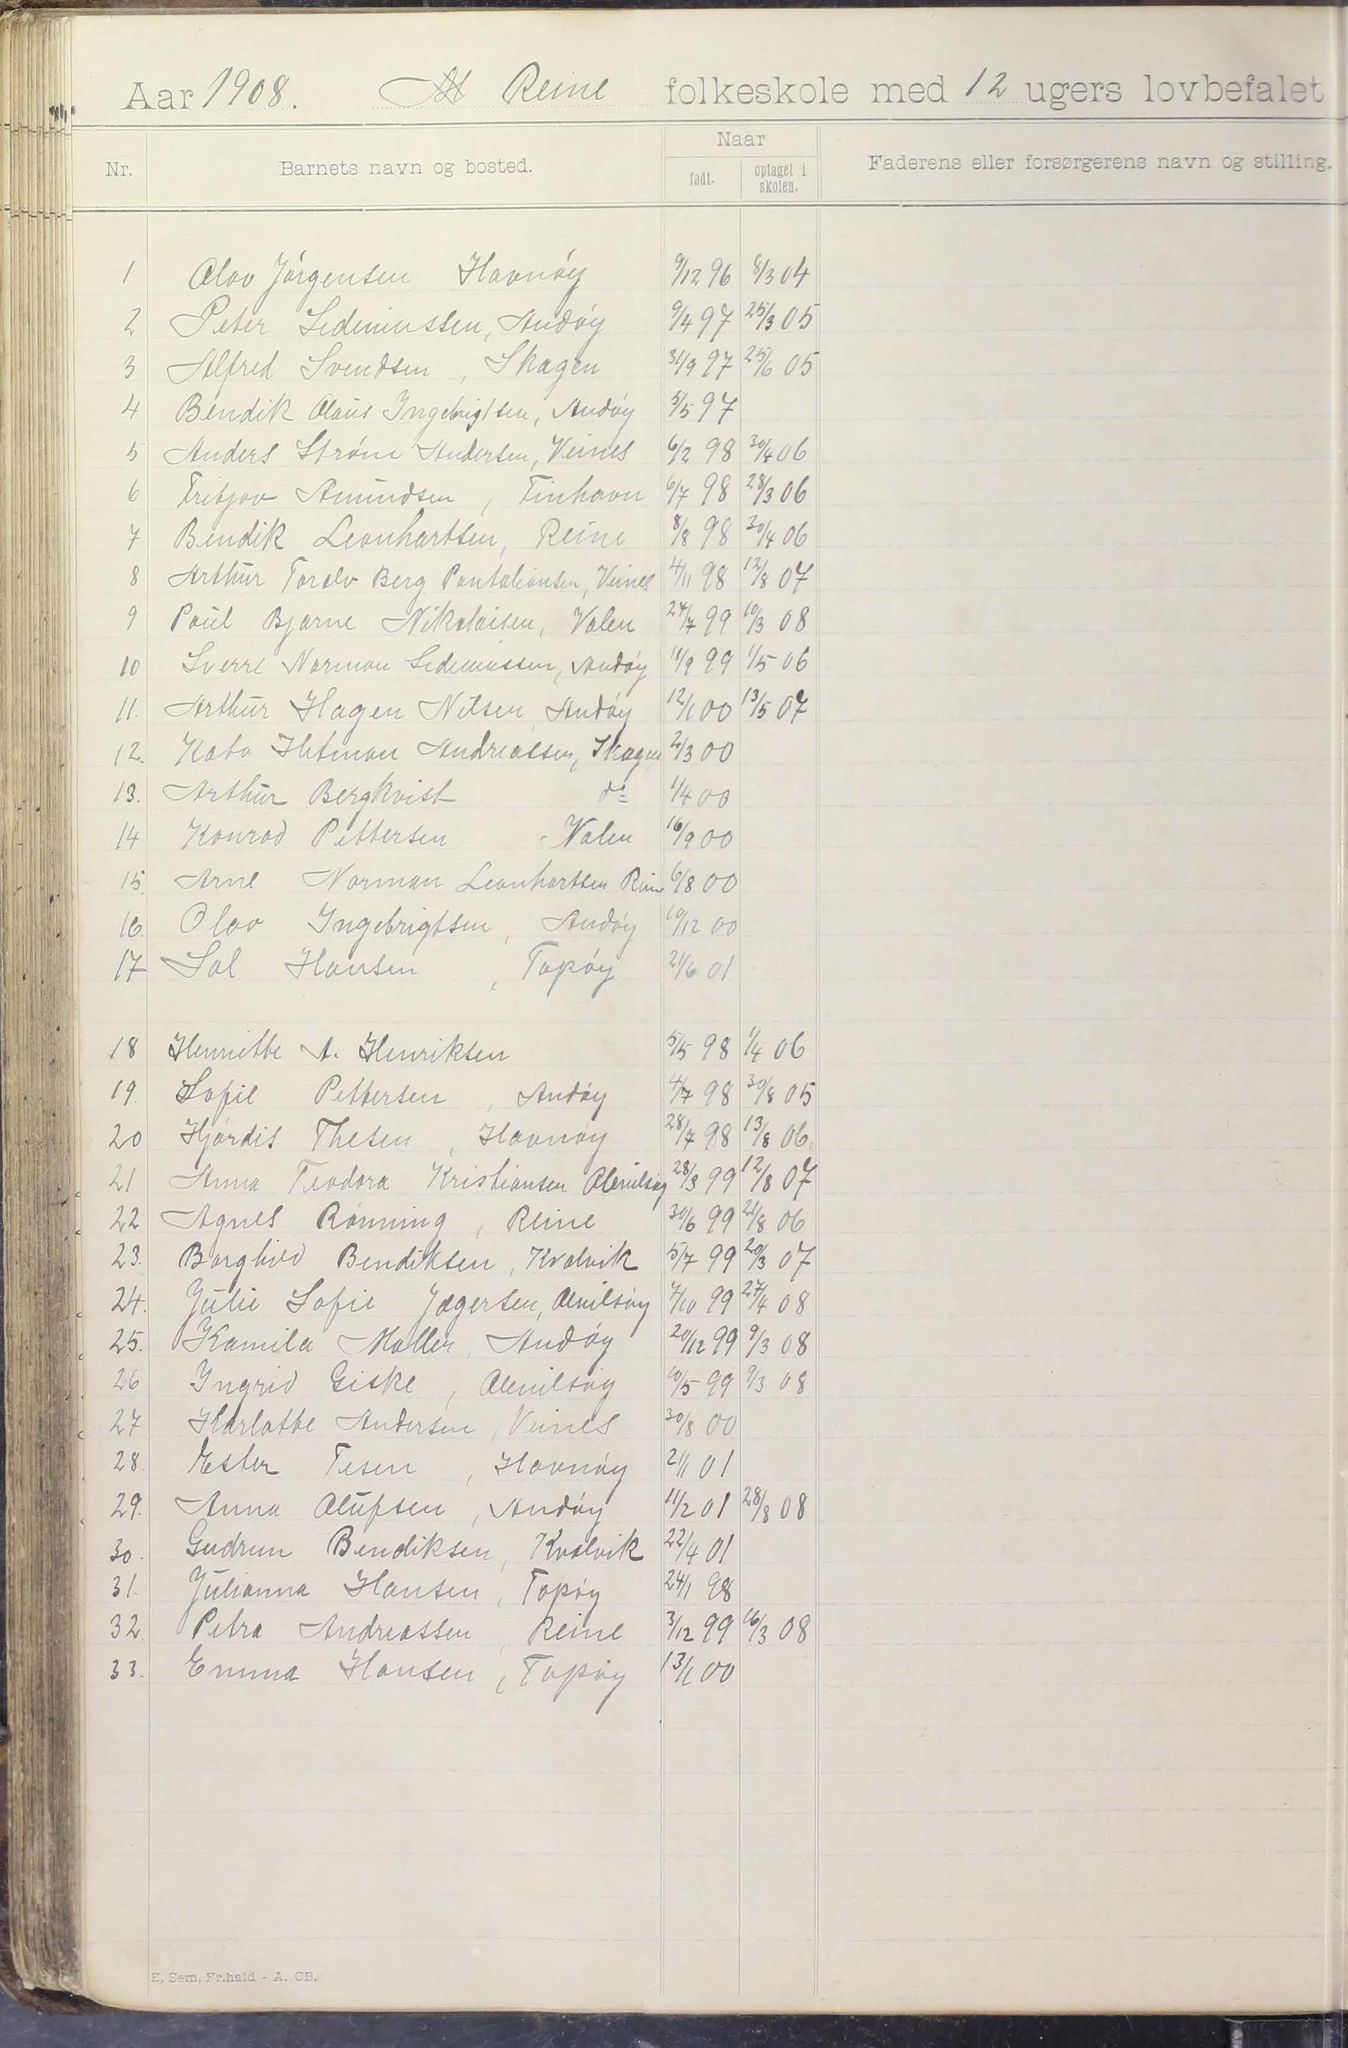 Aar 1908. Reine folkeskole med 12 ugers lovbefalet
Naar
Nr. Barnets navn og bosted. født. optaget i skolen. Faderens eller forsørgerens navn og stilling.
1 Olav Jørgensen Havnøy 9/12 96 8/3 04
2 Peter Sedeniussen, Andøy 9/4 97 25/3 05
3 Alfred Svendsen, Skagen 97 25/6 05
4 Bendik Olaus Ingebrigtsen, Andøy 5/5 97
5 Anders Strøm Andersen, Veines 6/2 98 30/4 06
6 Fritjov Amundsen, Finhavn 6/7 98 28/3 06
7 Bendik Leonhartsen, Reine 8/8 98 30/4 06
8 Arthur Toralv Berg Pantaliansen, Veines 4/11 98 12/8 07
9 Paul Bjarne Nikolaisen, Valen 24/7 99 10/3 08
10 Sverre Norman Sedeniussen, Andøy 11/9 99 1/5 06
11. Arthur Hagen Nilsen, Andøy 12/1 00 13/5 07
12. Kato Hitman Andreassen, Skagen 2/3 00
13. Arthur Bergkvist do 1/4 00
14 Konrad Pettersen, Valen 16/9 00
15. Arne Norman Leonhartsen Reine 6/8 00
16. Olav Ingebrigtsen, Andøy 10/12 00
17 Sal Hansen, Topøy 21/6 01
18 Henriette A. Henriksen 5/5 98 1/4 06
19. Sofie Pettersen, Andøy 4/7 98 30/8 05
20 Hjørdis Thesen, Havnøy 28/7 98 13/8 06.
21 Anna Teodora Kristiansen Olenilsøy 28/3 99 12/8 07
22 Agnes Rønning, Reine 30/6 99 21/8 06
23. Borghild Bendiksen, Kvalvik 5/7 99 20/3 07
24. Julie Sofie Jægersen, Olenilsøy 7/10 99 27/4 08
25. Kamila Møller, Andøy 20/12 99 9/3 08
26 Ingrid Giske, Olenilsøy 10/5 99 9/3 08
27 Karlotte Andersen, Veines 30/8 00
28. Ester Tesen, Havnøy 2/1 01
29. Anna Olufsen, Andøy 11/2 01 28/8 08
30. Gudrun Bendiksen, Kvalvik 22/4 01
31. Julianna Hansen, Topøy 24/1 98
32. Petra Andreassen, Reine 3/12 99 16/3 08
33. Emma Hansen, Topøy 13/1 00
E. Sem, Fr.hald - A. CB.